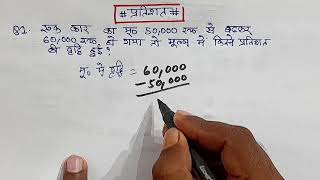 #प्रतिशत#
Q1. एक कार का मू० 50,000 रू० से बढ़कर
60,000 रू० हो गया तो मूल्य में कितने प्रतिशत
की वृद्धि हुई?
मू० में वृद्धि = 60,000
- 50,000